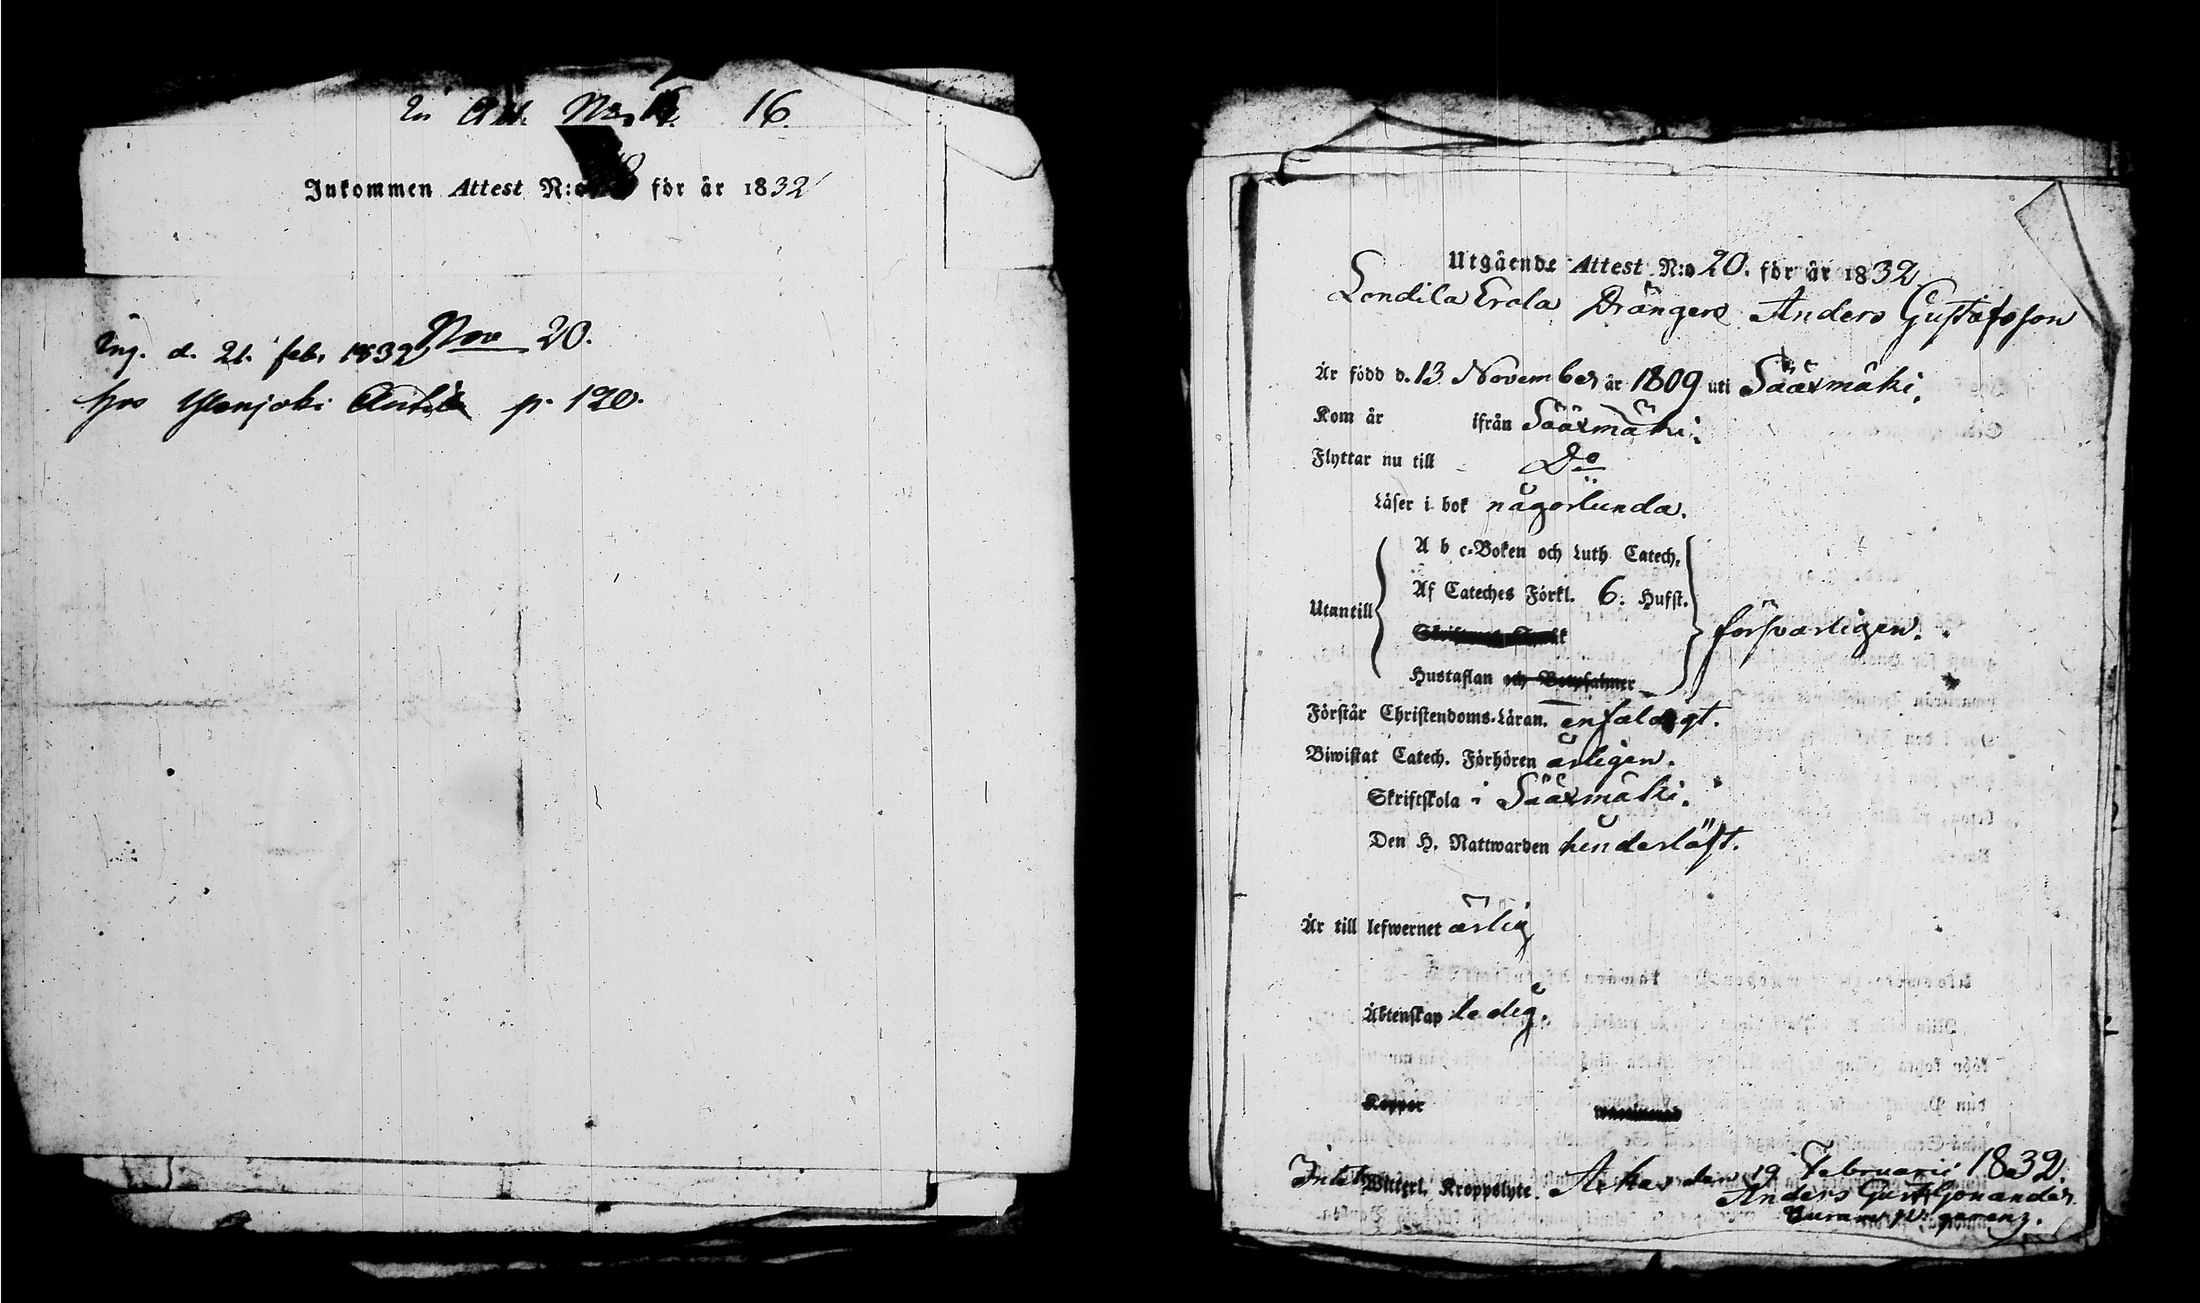 16.
Inkommen Attest N:o för år 1832
Ing. d. 21. feb. 1832 Nro 20.
hos p. 120.
Utgående Attest N:o 20. för år 1832
Londila Erola Drängen Anders Gustafsson
Är född d. 13 November år 1809 uti Sääxmäki.
Kom år ifrån Sääxmäki.
Flyttar nu till Do
Läser i bok någorlunda.
A b c-Boken och Luth Catech.
Af Cateches Förkl. 6: Hufst.
Utantill försvarligen.
Hustaflan och Botpsalmer
Förstår Christendoms-Läran. enfaldigt.
Biwistat Catech. Förhören årligen.
Skriftskola i Sääxmäki.
Den H. Nattwarden hinderlöst.
Är till lefwernet ärlig
Äktenskap ledig.
Koppor waccinerad
Intet Witterl. Kroppslyte. Akkas den 19 Februarii 1832
Anders Gust.